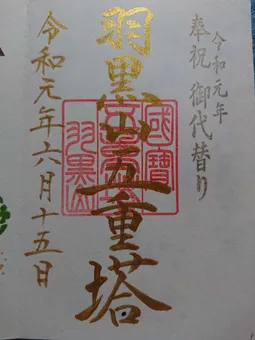 令和元年
奉祝 御代替り
羽黒山五重塔
國寶
令和元年六月十五日